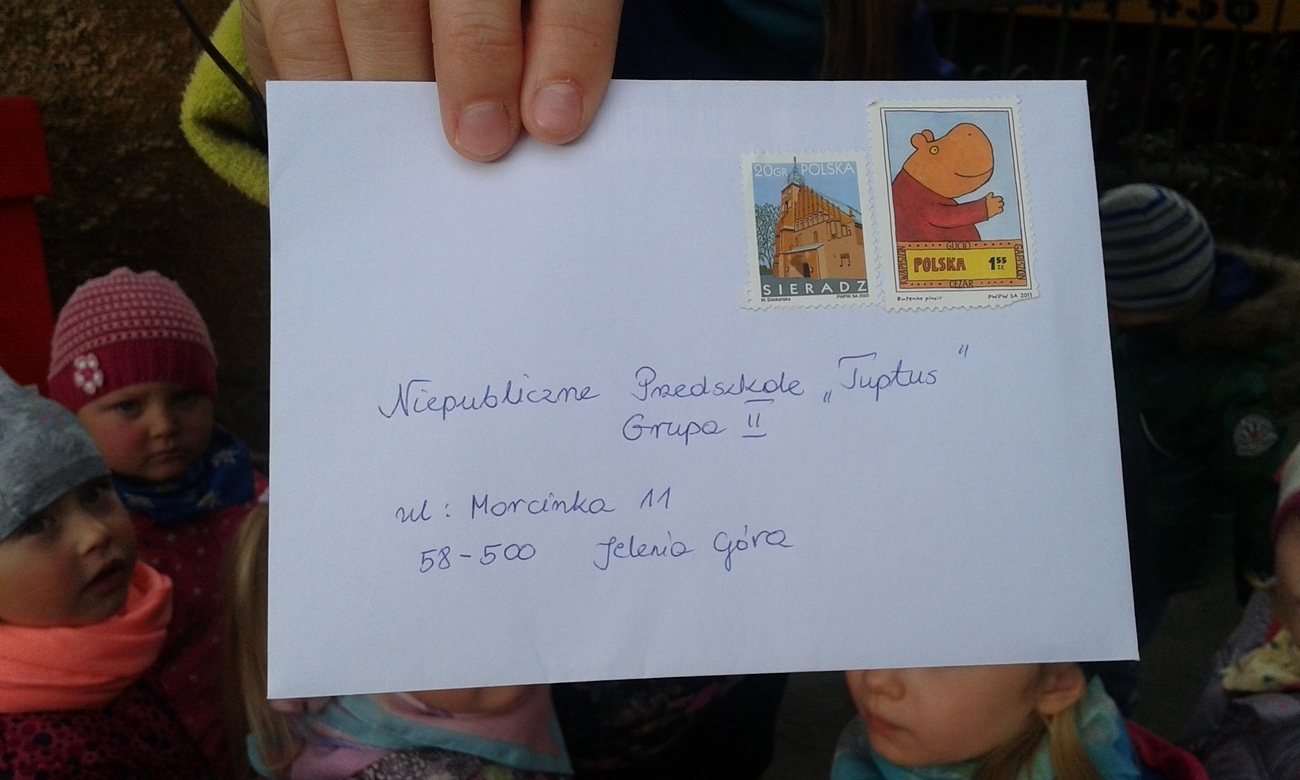 20GR POLSKA
SIERADZ
PWPW SA 2005
GUCIO
POLSKA 1 55 ZŁ
CEZAR
Butenko pinxit PWPW SA 2011
Niepubliczne Przedszkole „Tuptuś"
Grupa II
ul: Morcinka 11
58-500 Jelenia Góra